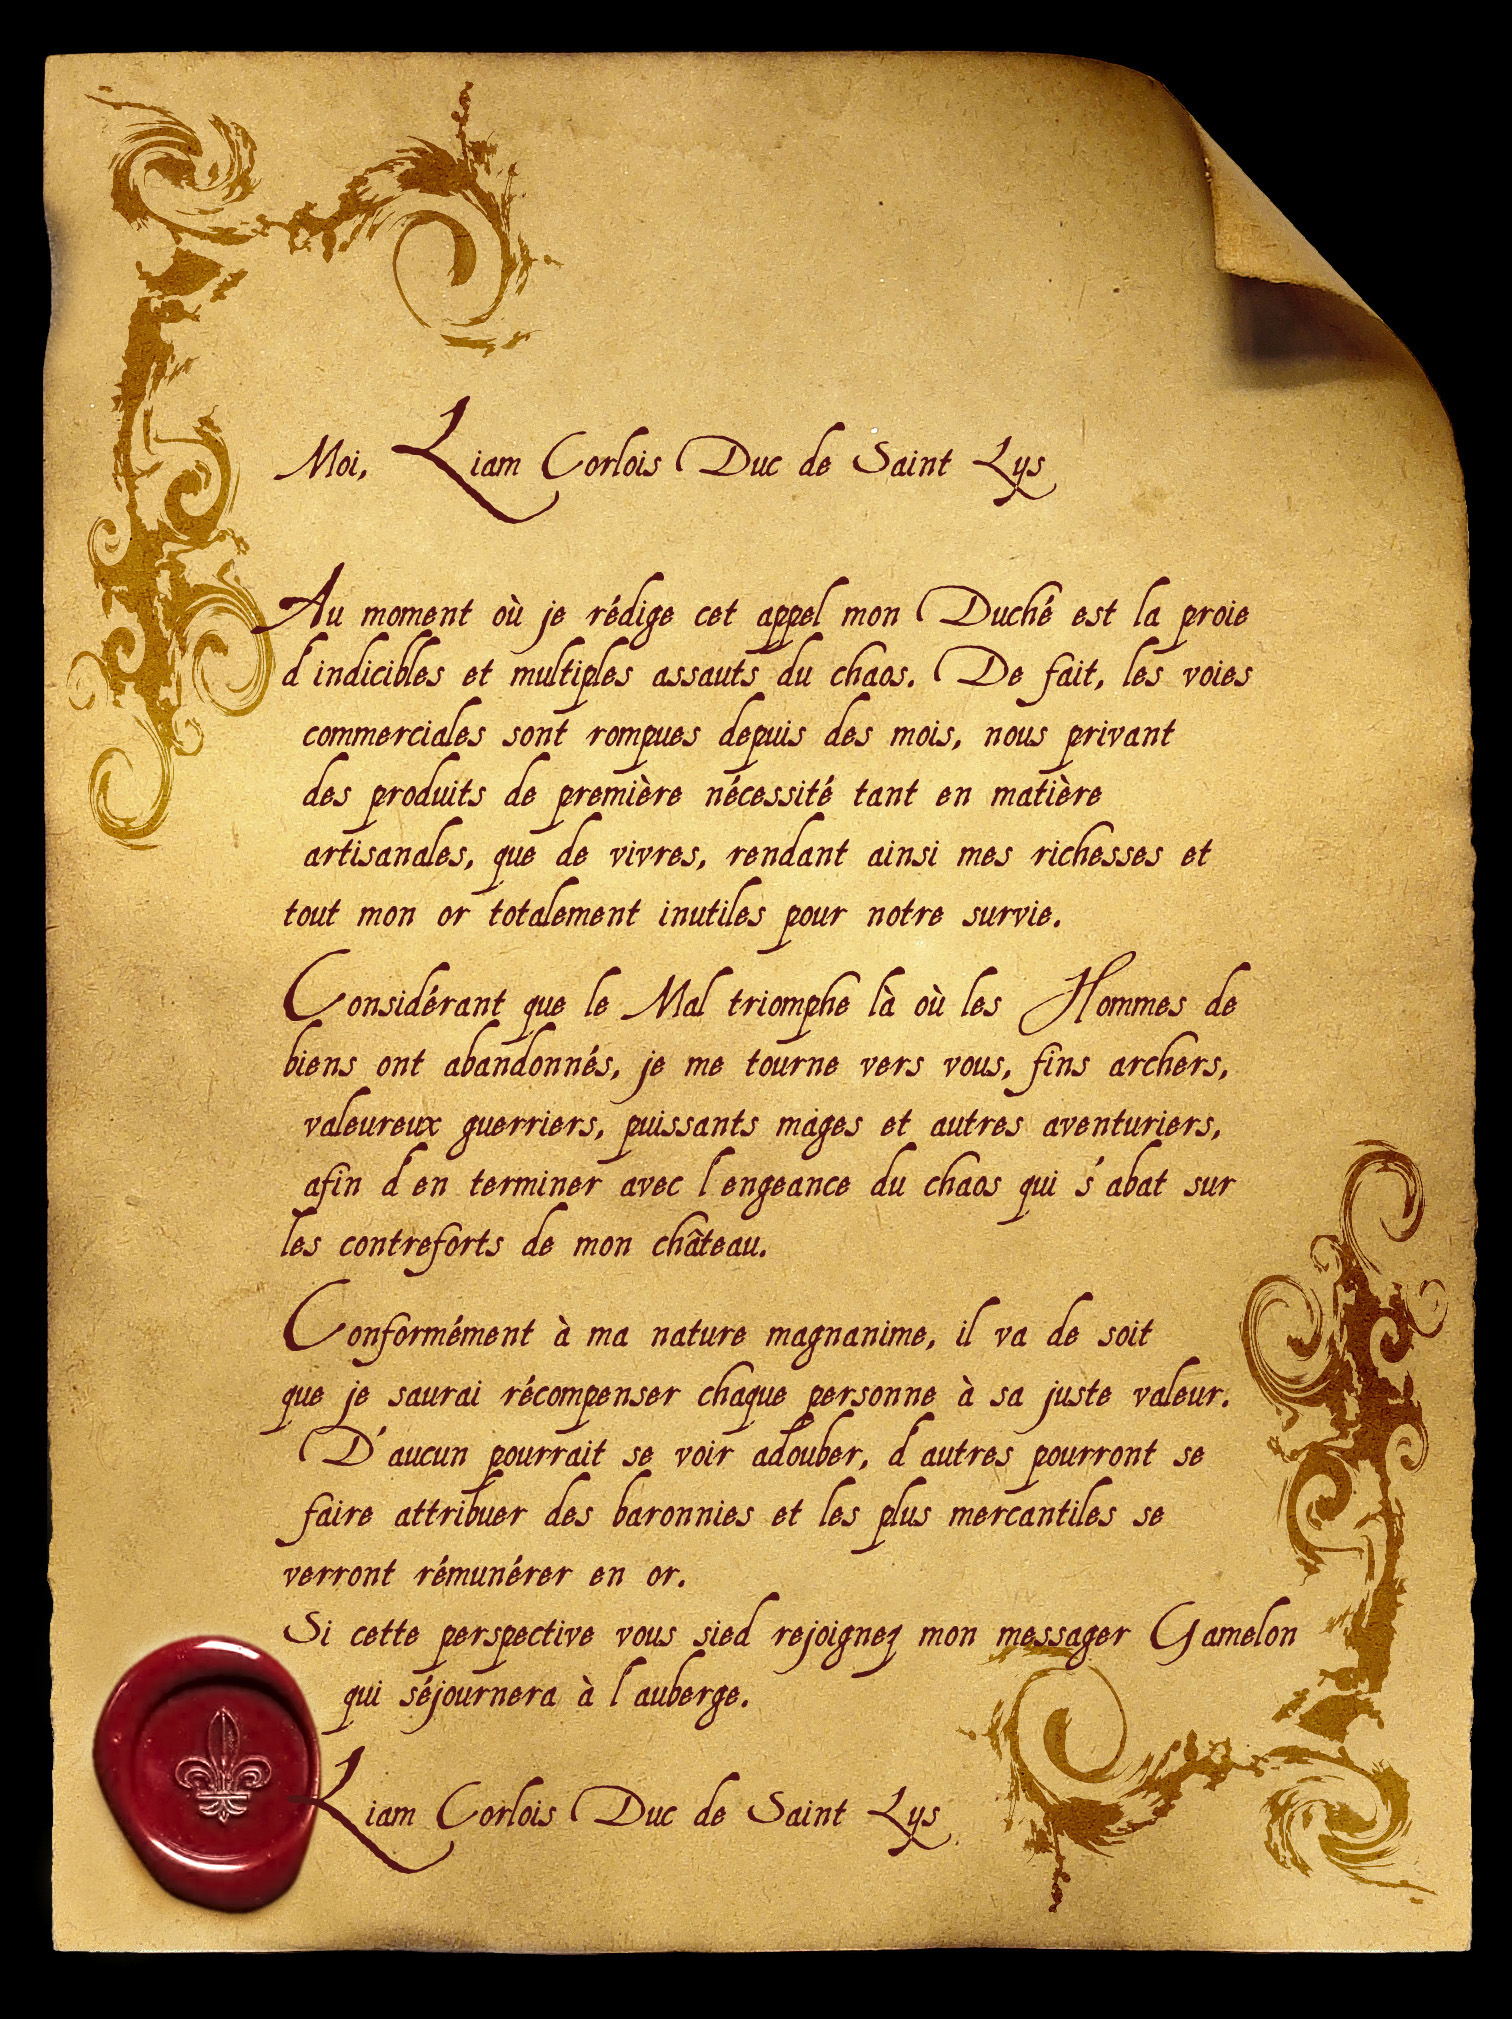 Moi, Liam Corlois Duc de Saint Lys
Au moment où je rédige cet appel mon Duché est la proie
d'indicibles et multiples assauts du chaos. De fait, les voies
commerciales sont rompues depuis des mois, nous privant
des produits de première nécessité tant en matière
artisanales, que de vivres, rendant ainsi mes richesses et
tout mon or totalement inutiles pour notre survie.
Considérant que le Mal triomphe là où les Hommes de
biens ont abandonnés, je me tourne vers vous, fins archers,
valeureux guerriers, puissants mages et autres aventuriers,
afin d'en terminer avec l'engeance du chaos qui s'abat sur
les contreforts de mon château.
Conformément à ma nature magnanime, il va de soit
que je saurai récompenser chaque personne à sa juste valeur.
D'aucun pourrait se voir adouber, d'autres pourront se
faire attribuer des baronnies et les plus mercantiles se
verront rémunérer en or.
Si cette perspective vous sied rejoignez mon messager Gamelon
qui séjournera à l'auberge.
Liam Corlois Duc de Saint Lys